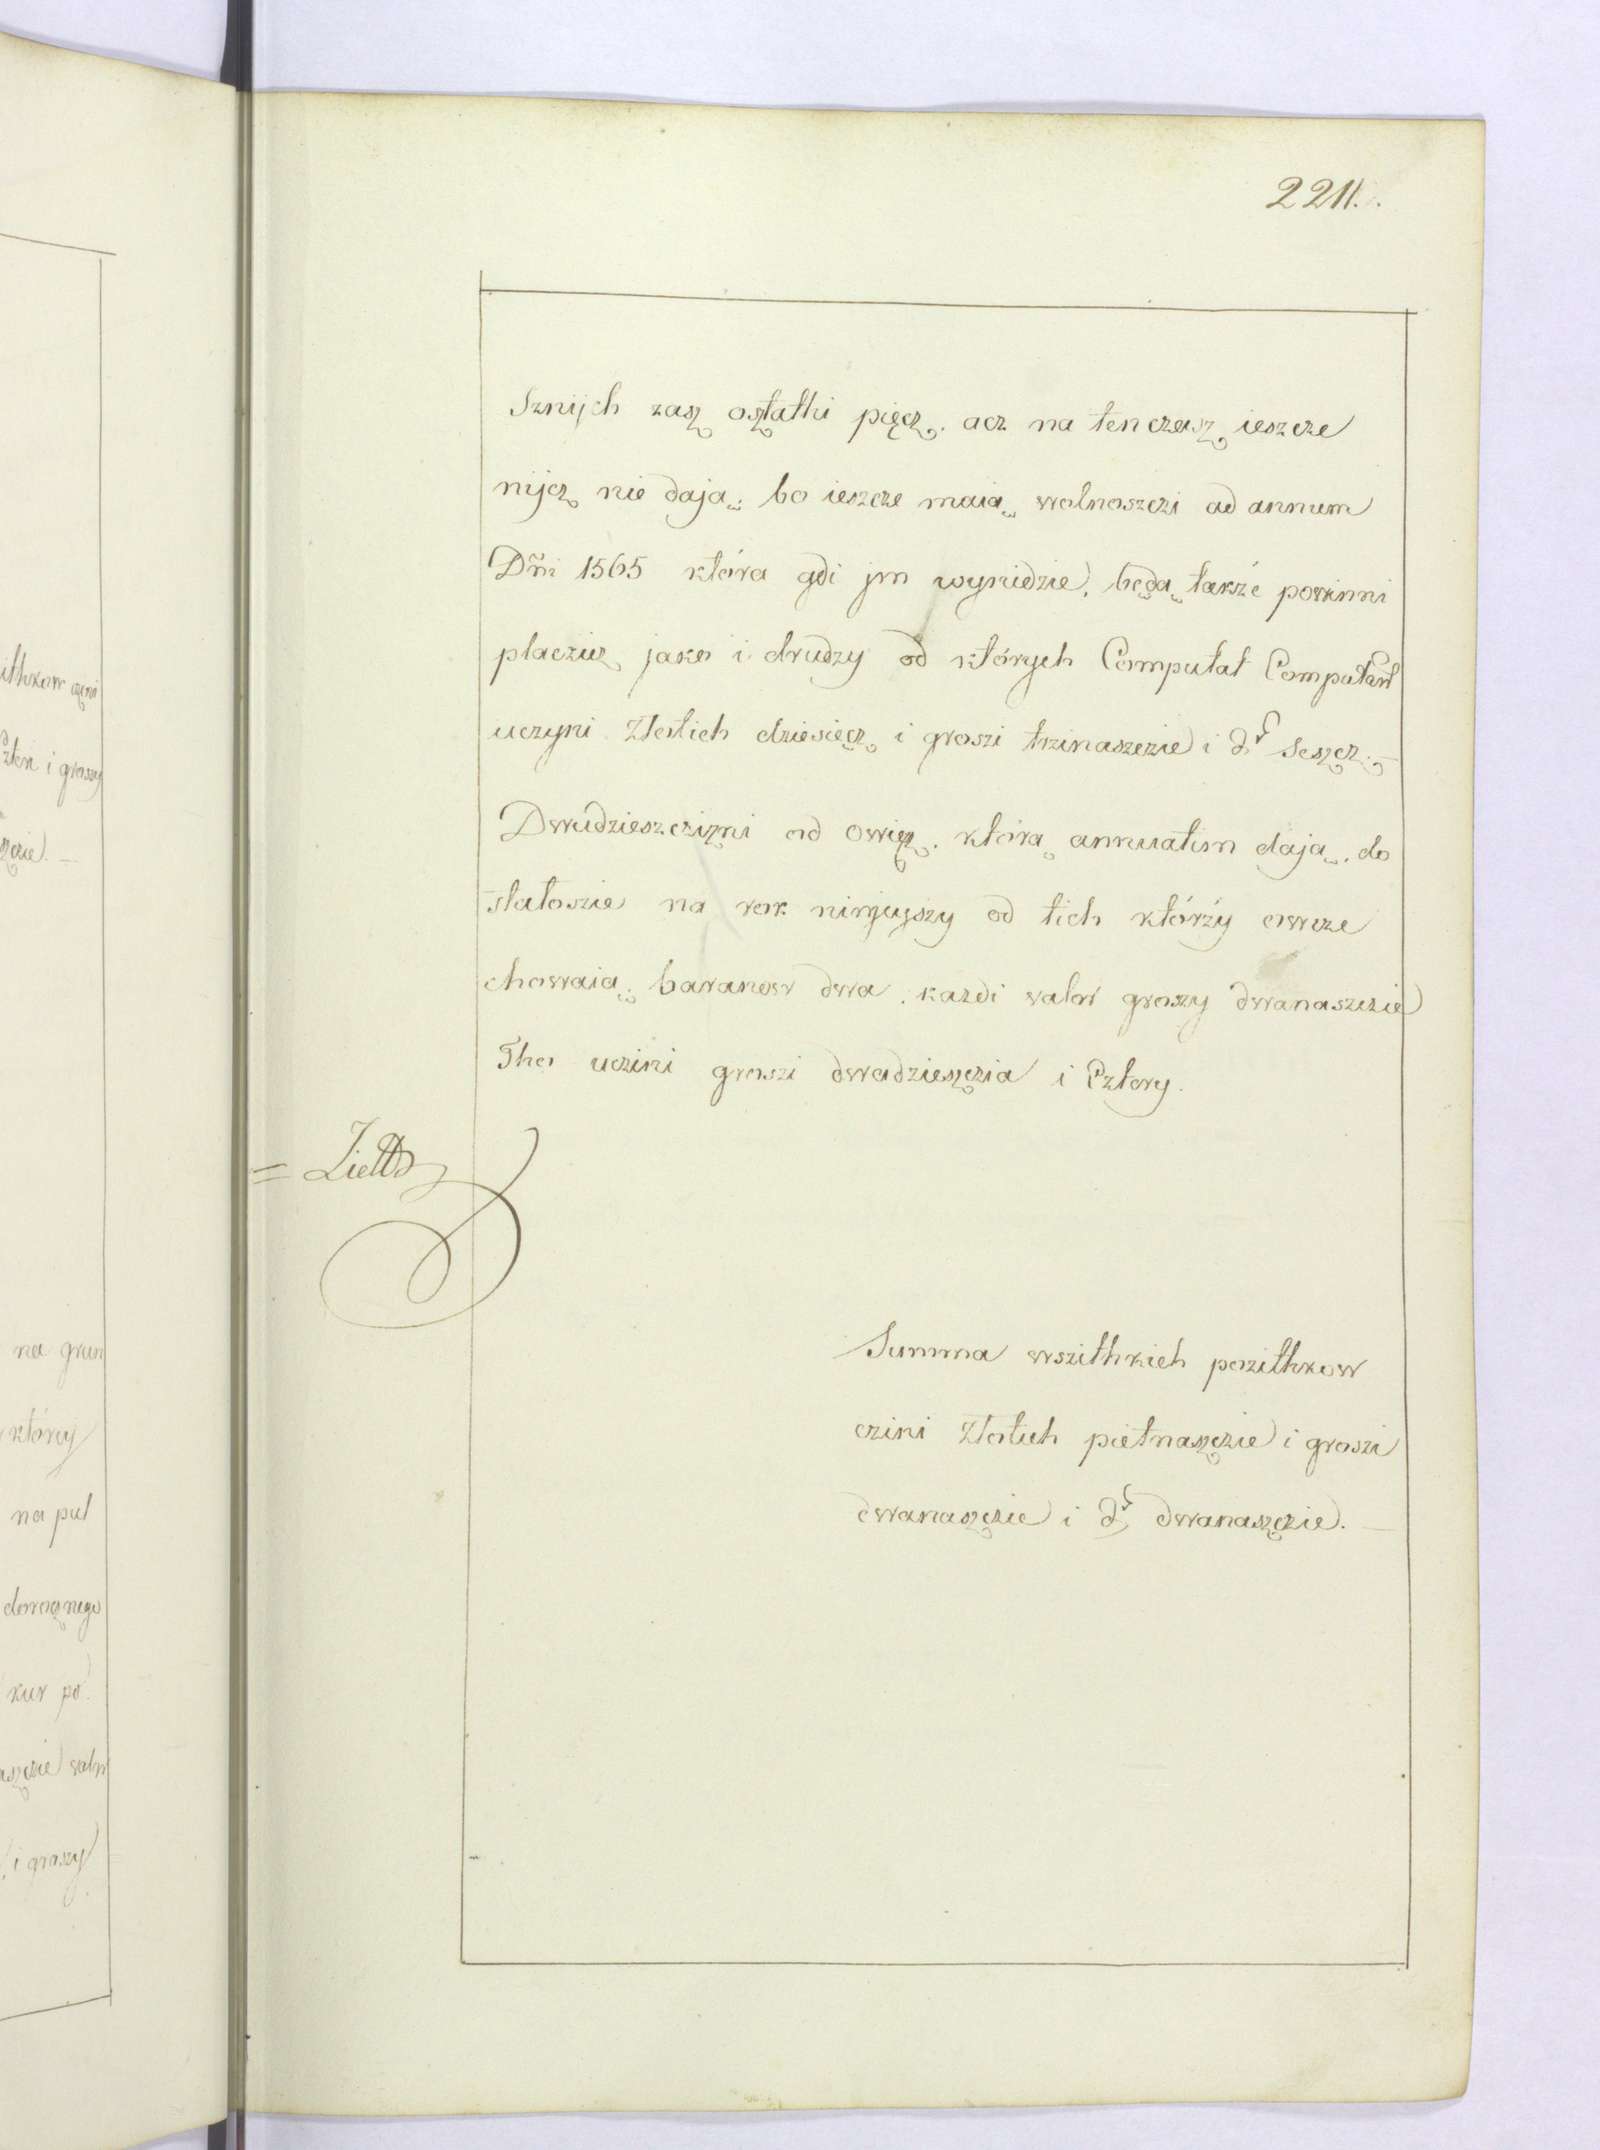 2211.
Sznijch zasz osztatki pięcz. acz na ten czasz ieszcze
nijcz nie dają. bo ieszcze maią wolnoszczi ad annum
Dñi 1565 która gdi jm wynidzie, będą takżé powinni
placzicz jako i drudzy od których Computat Computand
uczyni Złotich dziesięcz i groszi trzinaszczie i ₰ seszcz. —
Dwudzieszczizni od owięc. którą annuatim dają. do
na rok ninyeyszy od tich którży owcze
chowaią. baranow dwa. każdi valoŕ groszy dwanaszczie
Tho uczini groszi dwadzieszczia i Cztery.
Summa wszithkich pozithkow
czini Złotich piętnaszczie i groszi
dwanaszczie i ₰ dwanaszczie. —
ithkow czini
złotı i groszy
szczie. —
na grun
który
na pul
kur po
aszczie valoŕ
i groszy